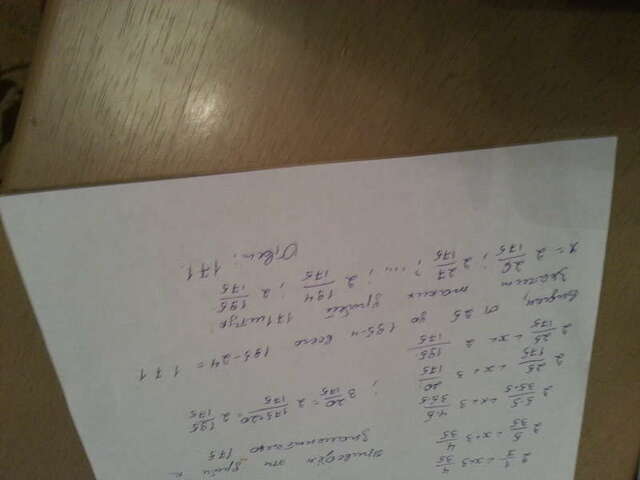 2 1/7 < x < 3 4/35 приведём эти дроби к
2 5/35 < x < 3 4/35 знаменателю 175
2 5·5/35·5 < x < 3 4·5/35·5
2 25/175 < x < 3 20/175 ; 3 20/175 = 2 175+20/175 = 2 195/175
2 25/175 < x < 2 195/175
от 25 до 195-и всего 195-24 = 171
Значит таких дробей 171 штук
x = 2 26/175 ; 2 27/175 ; ... ; 2 194/175 ; 2 195/175
Ответ: 171